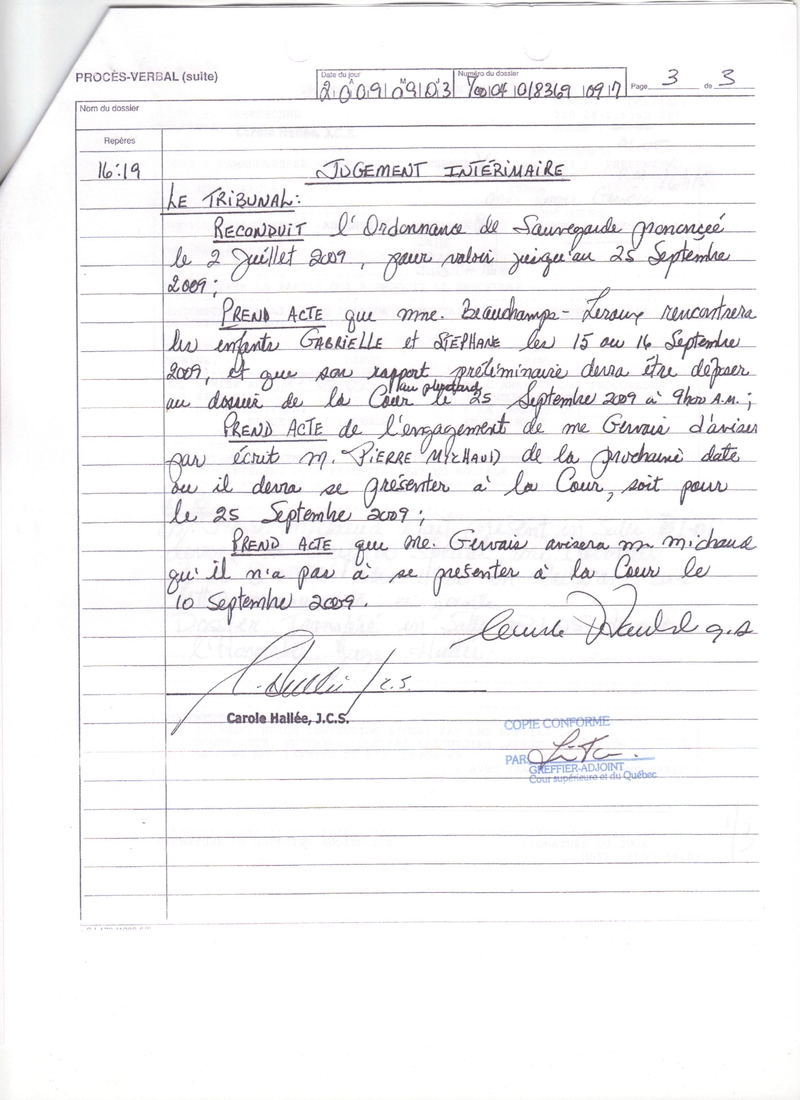 PROCÈS-VERBAL (suite)
Date du jour
A M J
2009 09 03
Numéro du dossier
Page 3 de 3
Nom du dossier
Repères
16:19
JUGEMENT INTÉRIMAIRE
LE TRIBUNAL:
RECONDUIT l'Ordonnance de Sauvegarde prononcée
le 2 Juillet 2009, pour valoir jusqu'au 25 Septembre
2009;
PREND ACTE que mme. Beauchamps-Leroux rencontrera
les enfants GABRIELLE et STEPHANE les 15 ou 16 Septembre
2009, et que son rapport préliminaire devra être déposer
au plus tard
au dossier de la Cour le 25 Septembre 2009 à 9h00 A.M.;
PREND ACTE de l'engagement de me Gervais d'aviser
par écrit M. PIERRE MICHAUD de la prochaine date
ou il devra se présenter à la Cour, soit pour
le 25 Septembre 2009;
PREND ACTE que Me. Gervais avisera m. michaud
qu'il n'a pas à se presenter à la Cour le
10 Septembre 2009.
J.C.S.
Carole Hallée, J.C.S.
COPIE CONFORME
PAR
GREFFIER-ADJOINT
Cour supérieure et du Québec